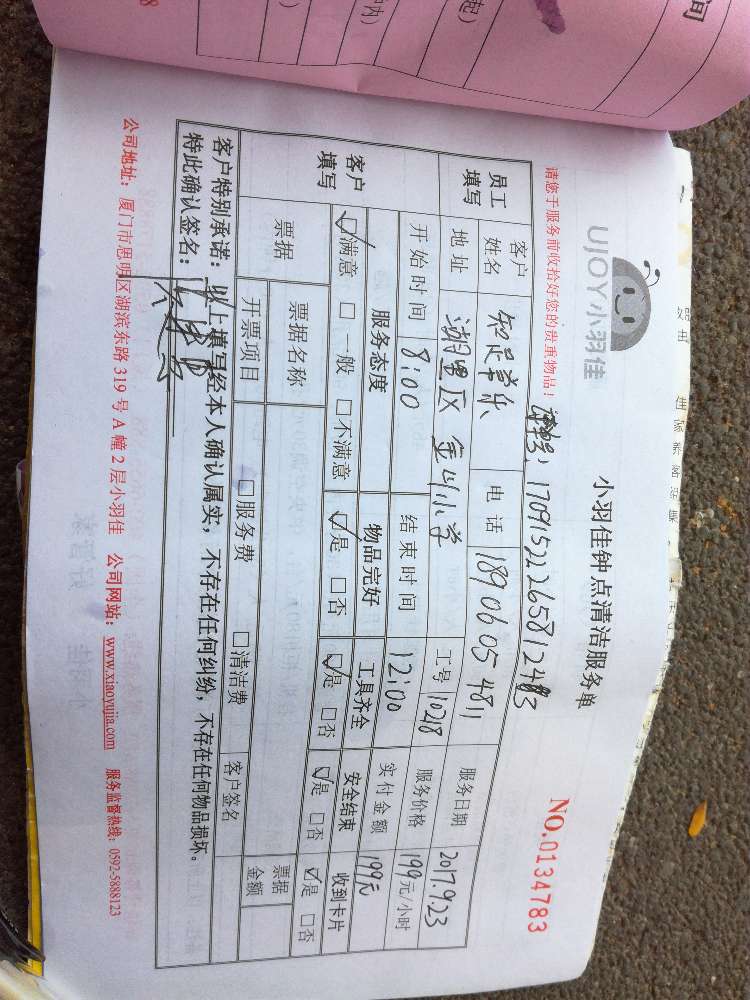 UJOY小羽佳
小羽佳钟点清洁服务单
NO.0134783
请您于服务前收拾好您的贵重物品!
员工填写
客户姓名 电话 18906054811 服务日期 2017.9.23
地址 湖里区金山小学 工号 10218 服务价格 199元/小时
开始时间 8:00 结束时间 12:00 实付金额 199元
客户填写
服务态度 物品完好 工具齐全 安全结束 收到卡片
☑满意 □一般 □不满意 ☑是 □否 ☑是 □否 ☑是 □否 ☑是 □否
票据 票据名称 票据金额
开票项目 □服务费 □清洁费 客户签名
客户特别承诺:以上填写经本人确认属实,不存在任何纠纷,不存在任何物品损坏。
特此确认签名:
公司地址:厦门市思明区湖滨东路319号A幢2层小羽佳 公司网站:www.xiaoyujia.com 服务监督热线:0592-5888123